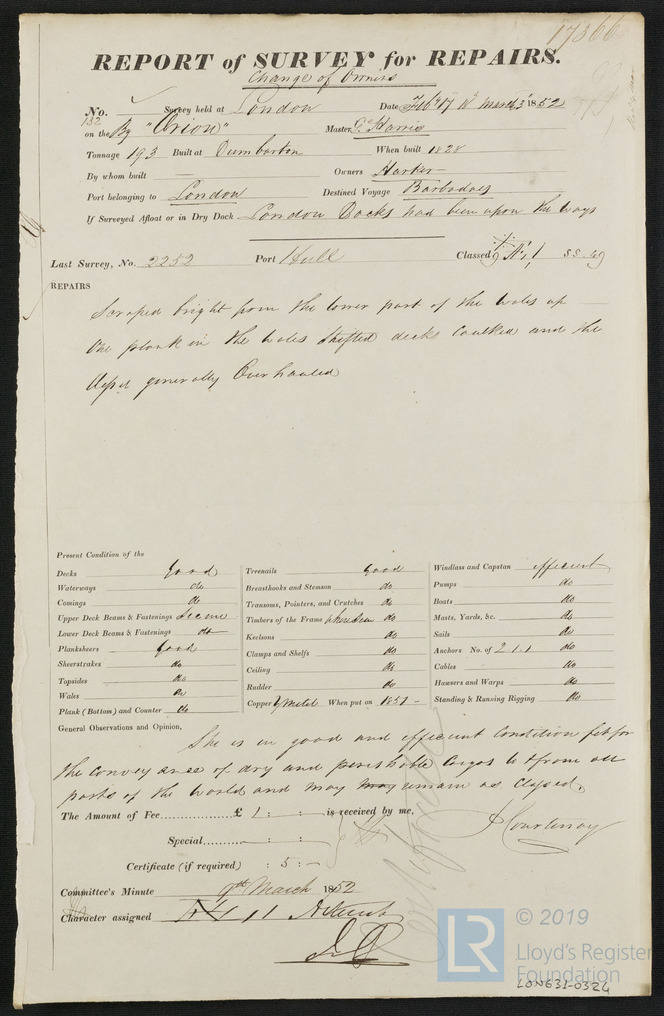 17366
REPORT of SURVEY for REPAIRS.
Change of Owners
No. Survey held at London Date Feby 17 to March 3d 1852
132 on the Bg "Orion" Master G Harris
Tonnage 193 Built at Dumbarton When built 1828
By whom built — Owners Harker
Port belonging to London Destined Voyage Barbadoes
If Surveyed Afloat or in Dry Dock London Docks had been upon the ways
Last Survey, No. 2252 Port Hull Classed 9 Æ 1 SS 49
REPAIRS
Scraped bright from the lower part of the wales up
One plank in the wales shifted decks caulked and the
Vessel generally Overhauled
Present Condition of the
Decks good
Waterways do
Comings do
Upper Deck Beams & Fastenings Secure
Lower Deck Beams & Fastenings do
Planksheers good
Sheerstrakes do
Topsides do
Wales do
Plank (Bottom) and Counter do
Treenails good
Breasthooks and Stemson do
Transoms, Pointers, and Crutches do
Timbers of the Frame where seen do
Keelsons do
Clamps and Shelfs do
Ceiling do
Rudder do
Copper Y Metal When put on 1851 -
Windlass and Capstan efficient
Pumps do
Boats do
Masts, Yards, &c. do
Sails do
Anchors No. of 2 1 1 do
Cables do
Hawsers and Warps do
Standing & Running Rigging do
General Observations and Opinion,
She is in good and efficient Condition fit for
the conveyance of dry and perishable Cargos to & from all
parts of the World and may may remain as Classed.
The Amount of Fee £ 1 : : is received by me,
Special : :
J Courtenay
Certificate (if required) : 5 : -
Committee's Minute 9th March 1852
Character assigned Æ 1
LR © 2019
Lloyd's Register
Foundation
LON631-0324